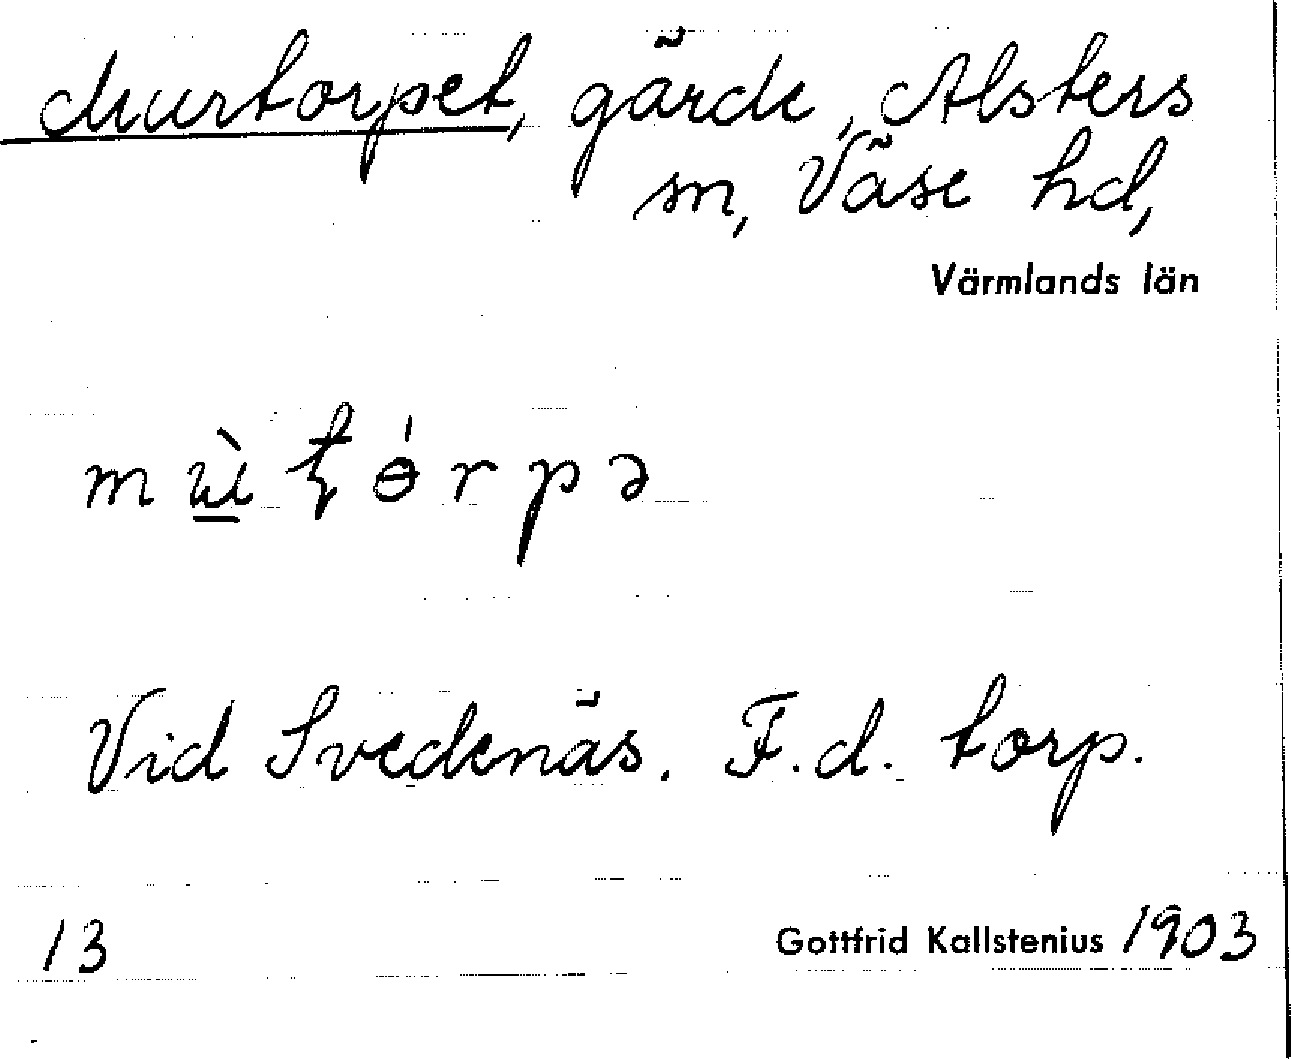 Murtorpet, gärde, Alsters
sn, Väse hd,
Värmlands län
mù̲ʈɵ́rpə
Vid Svedenäs. F.d. torp.
13 Gottfrid Kallstenius 1903